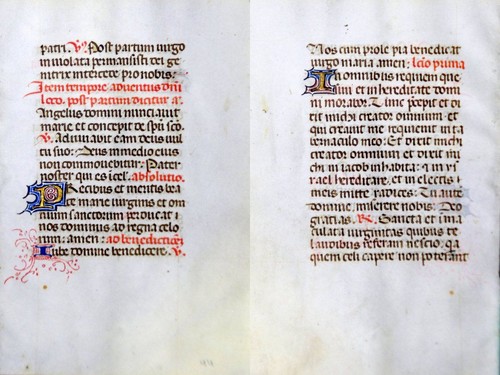 patri. V. Post partum virgo
inviolata permansisti dei ge
nitrix intercede pro nobis.
Item tempore adventus dñi
loco. post partum dicitur a.
Angelus domini nunciavit
marie et concepit de spũ sco.
V. Adiuvabit eam deus vul
tu suo: Deus in medio eius
non commovebitur. Pater
noster qui es i cel. absolutio.
Precibus et meritis bea
te marie virginis et om
nium sanctorum perducat i
nos dominus ad regna celo
rum: amen: ad benedictioẽ
Iube domine benedicere. V.
Nos cum prole pia benedicat
virgo maria amen: lcõ prima
In omnibus requiem que
sivi et in hereditate domi
ni morabor. Tunc precepit et di
xit michi creator omnium. et
qui creavit me requievit in ta
bernaculo meo: Et dixit michi
creator omnium et dixit mi
chi in iacob inhabita: et in is
rael hereditare. et in electis
meis mitte radices: Tu aute
domine. miserere nobis: Deo
gratias. R. Sancta et ima
culata virginitas quibus te
laudibus referam nescio. q̃a
quem celi capere non poterant